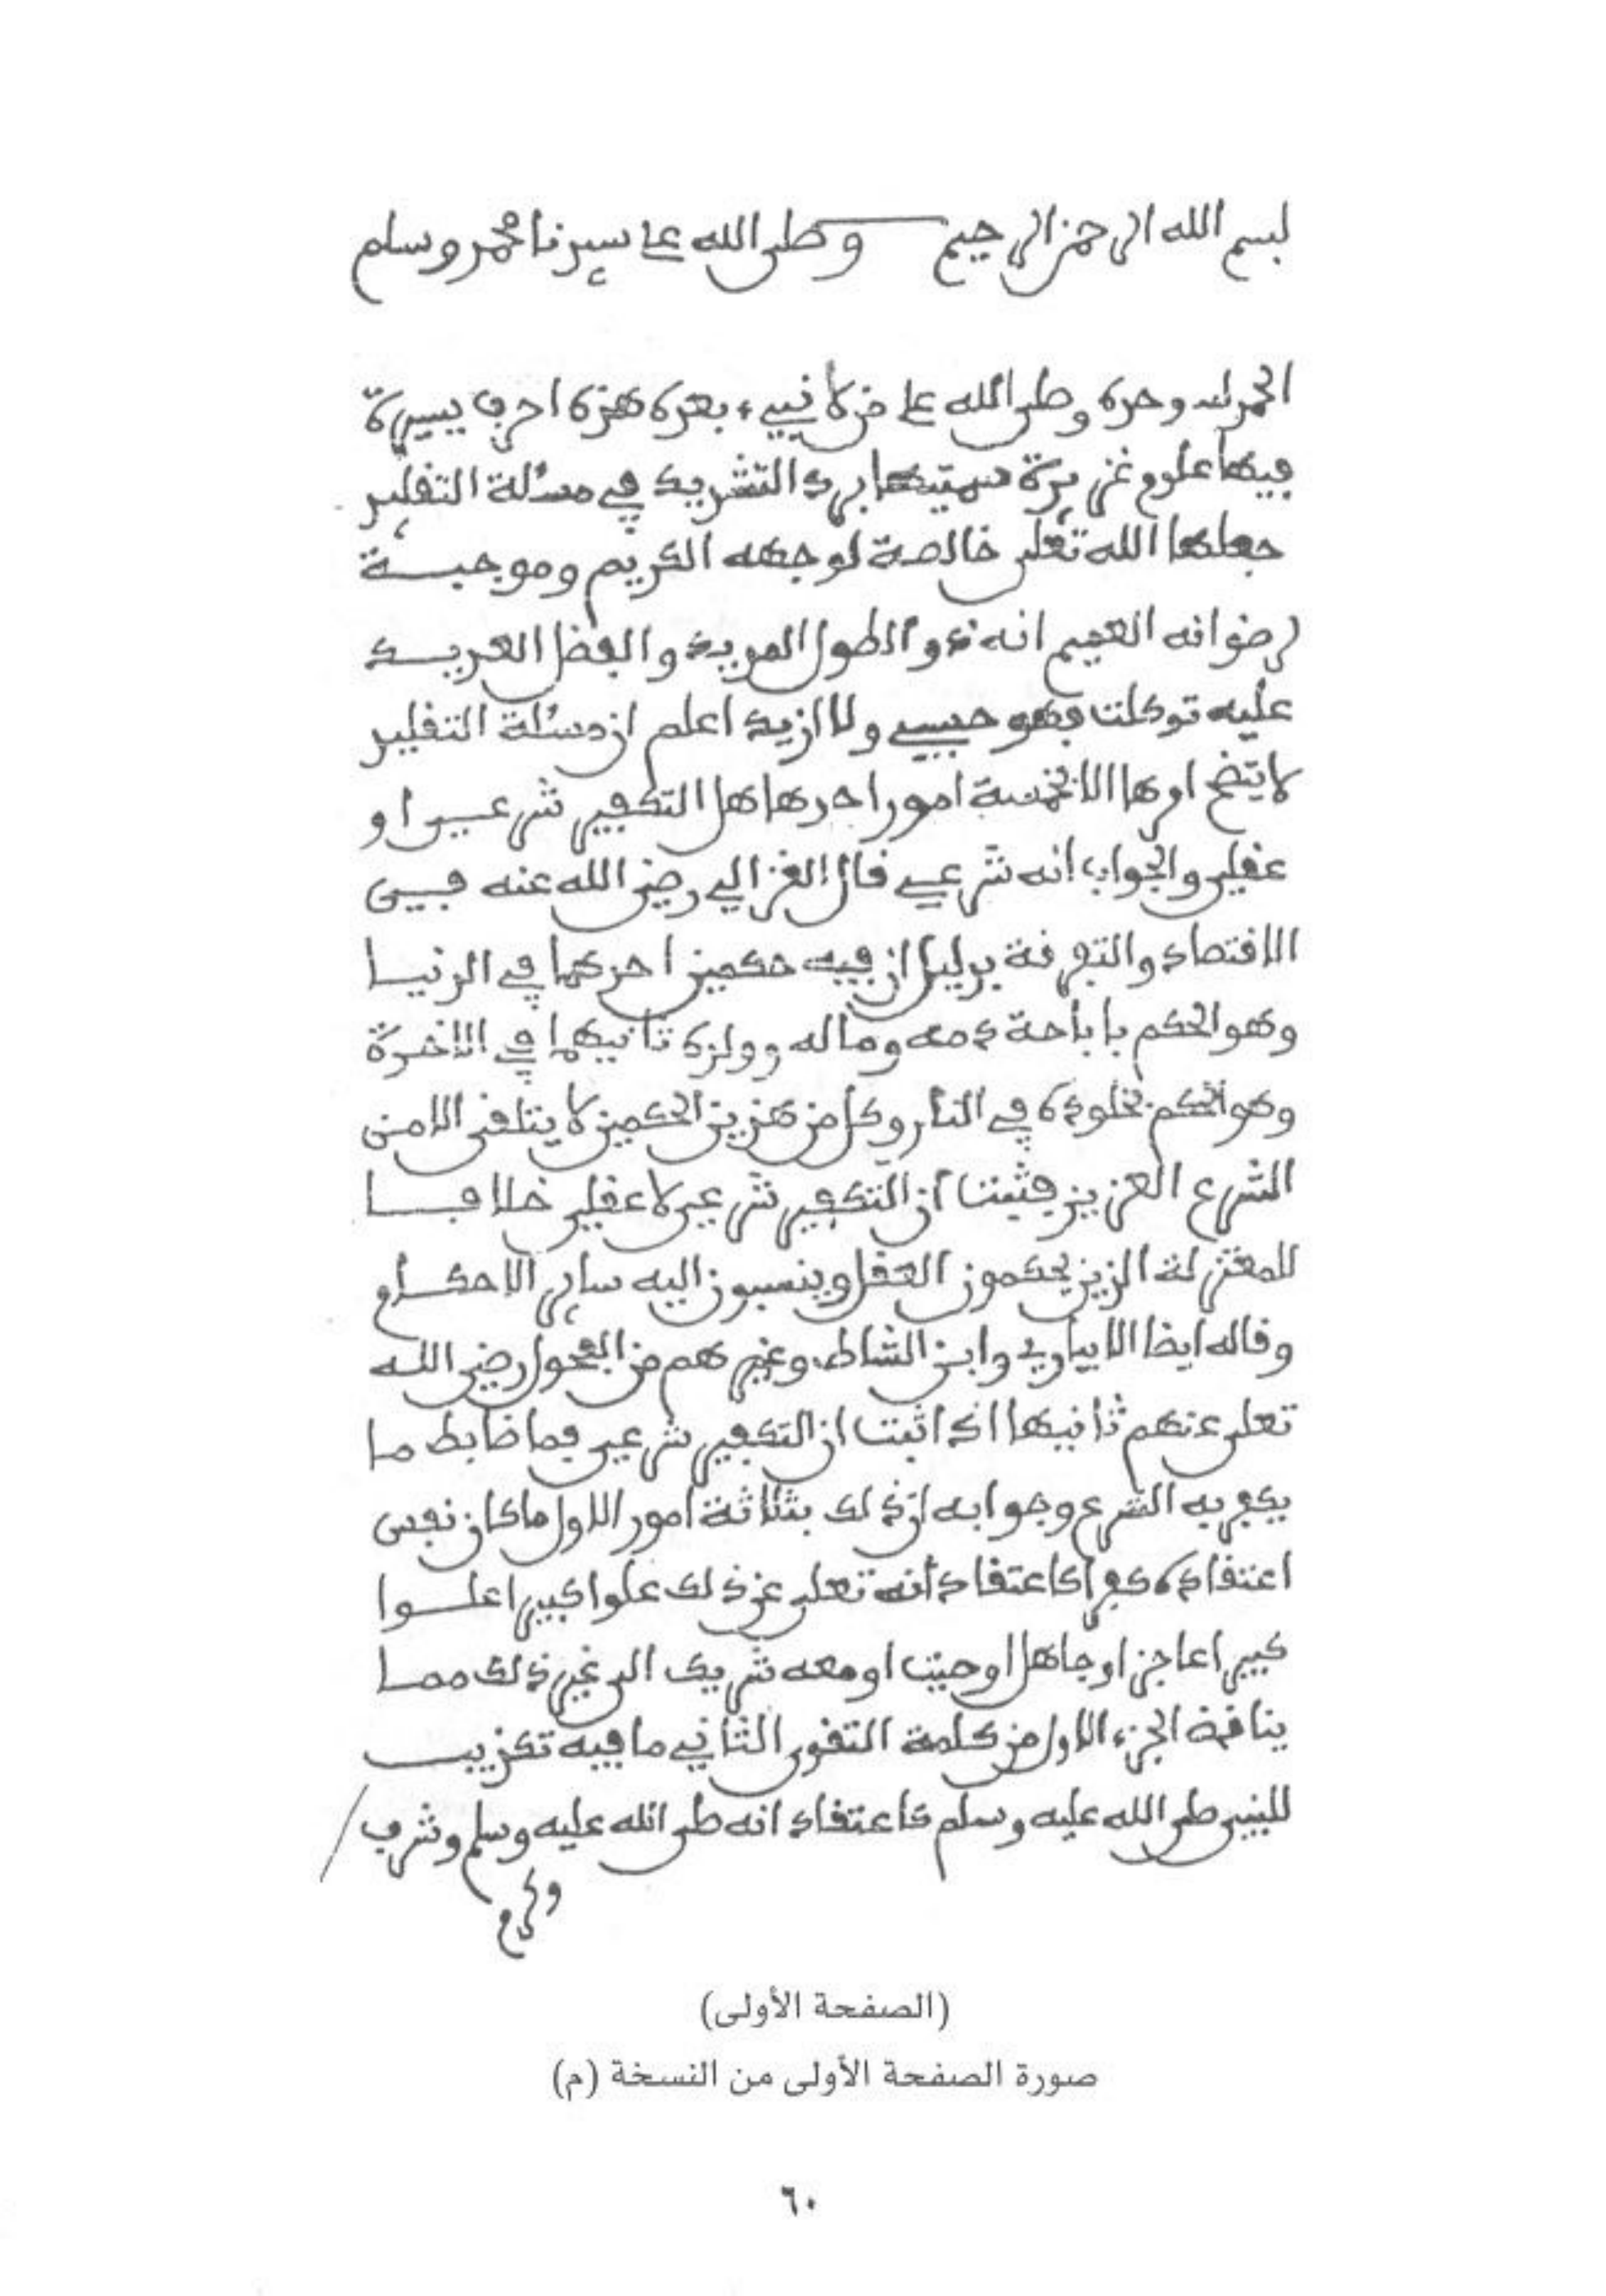 بسم الله الرحمن الرحيم وصلى الله على سيدنا محمد وسلم
الحمد لله وحده وصلى الله على من لا نبيء بعده هذه احرف يسيرة
فيها علوم غزيرة سميتها برد التشديد في مسئلة التقليد
جعلها الله تعلى خالصة لوجهه الكريم وموجبة
لرضوانه العميم انه ذو الطول المديد والفضل العديد
عليه توكلت فهو حسبي ولا ازيد اعلم ان مسئلة التقليد
لا يتضح امرها الا بخمسة امور احدها هل التكفير شرعي او
عقلي والجواب انه شرعي قال الغزالي رضي الله عنه في
الاقتصاد والتفرقة بدليل ان فيه حكمين احدهما في الدنيا
وهو الحكم باباحة دمه وماله وولده ثانيهما في الاخرة
وهو الحكم بخلوده في النار وكل من هذين الحكمين لا يتلقى الا من
الشرع العزيز فثبت ان التكفير شرعي لا عقلي خلافا
للمعتزلة الذين يحكمون العقل وينسبون اليه ساير الاحكام
وقاله ايضا الابياري وابن الشاط وغيرهم من الفحول رضي الله
تعلى عنهم ثانيها اذا ثبت ان التكفير شرعي فما ضابط ما
يكفر به الشرع وجوابه ان ذلك بثلاثة امور الاول ما كان نفس
اعتقاده كفرا كاعتقاد انه تعلى عن ذلك علوا كبيرا علوا
كبيرا عاجز او جاهل او ميت او معه شريك الى غير ذلك مما
يناقض الجزء الاول من كلمة التقوى الثاني ما فيه تكذيب
للنبي صلى الله عليه وسلم كاعتقاد انه صلى الله عليه وسلم وشرف
وكرم
(الصفحة الأولى)
صورة الصفحة الأولى من النسخة (م)
٦٠